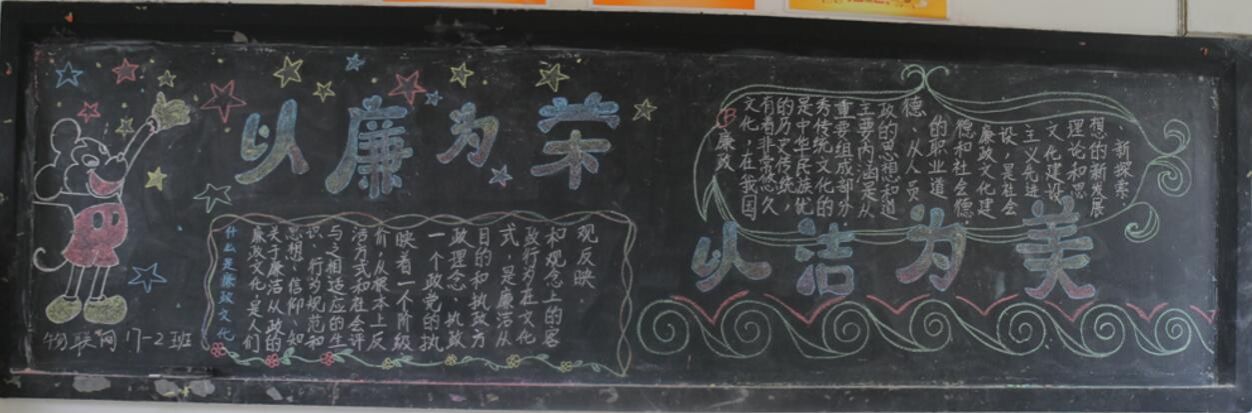 以廉为荣
什么是廉政文化
廉政文化,是人们
关于廉洁从政的
思想、信仰、知
识、行为规范和
与之相适应的生
活方式和社会评
价,从根本上反
映着一个阶级
一个政党的执
政理念、执政
目的和执政方
式,是廉洁从
政行为在文化
和观念上的客
观反映.
物联网17-2班
廉政
文化,在我国
有着非常悠久
的历史传统,
是中华民族优
秀传统文化的
重要组成部分
主要内涵是从
政的思想和道
德、从人员
的职业道
德和社会德.
廉政文化建
设,是社会
主义先进
文化建设
理论和思
想的新发展
、新探索.
以洁为美